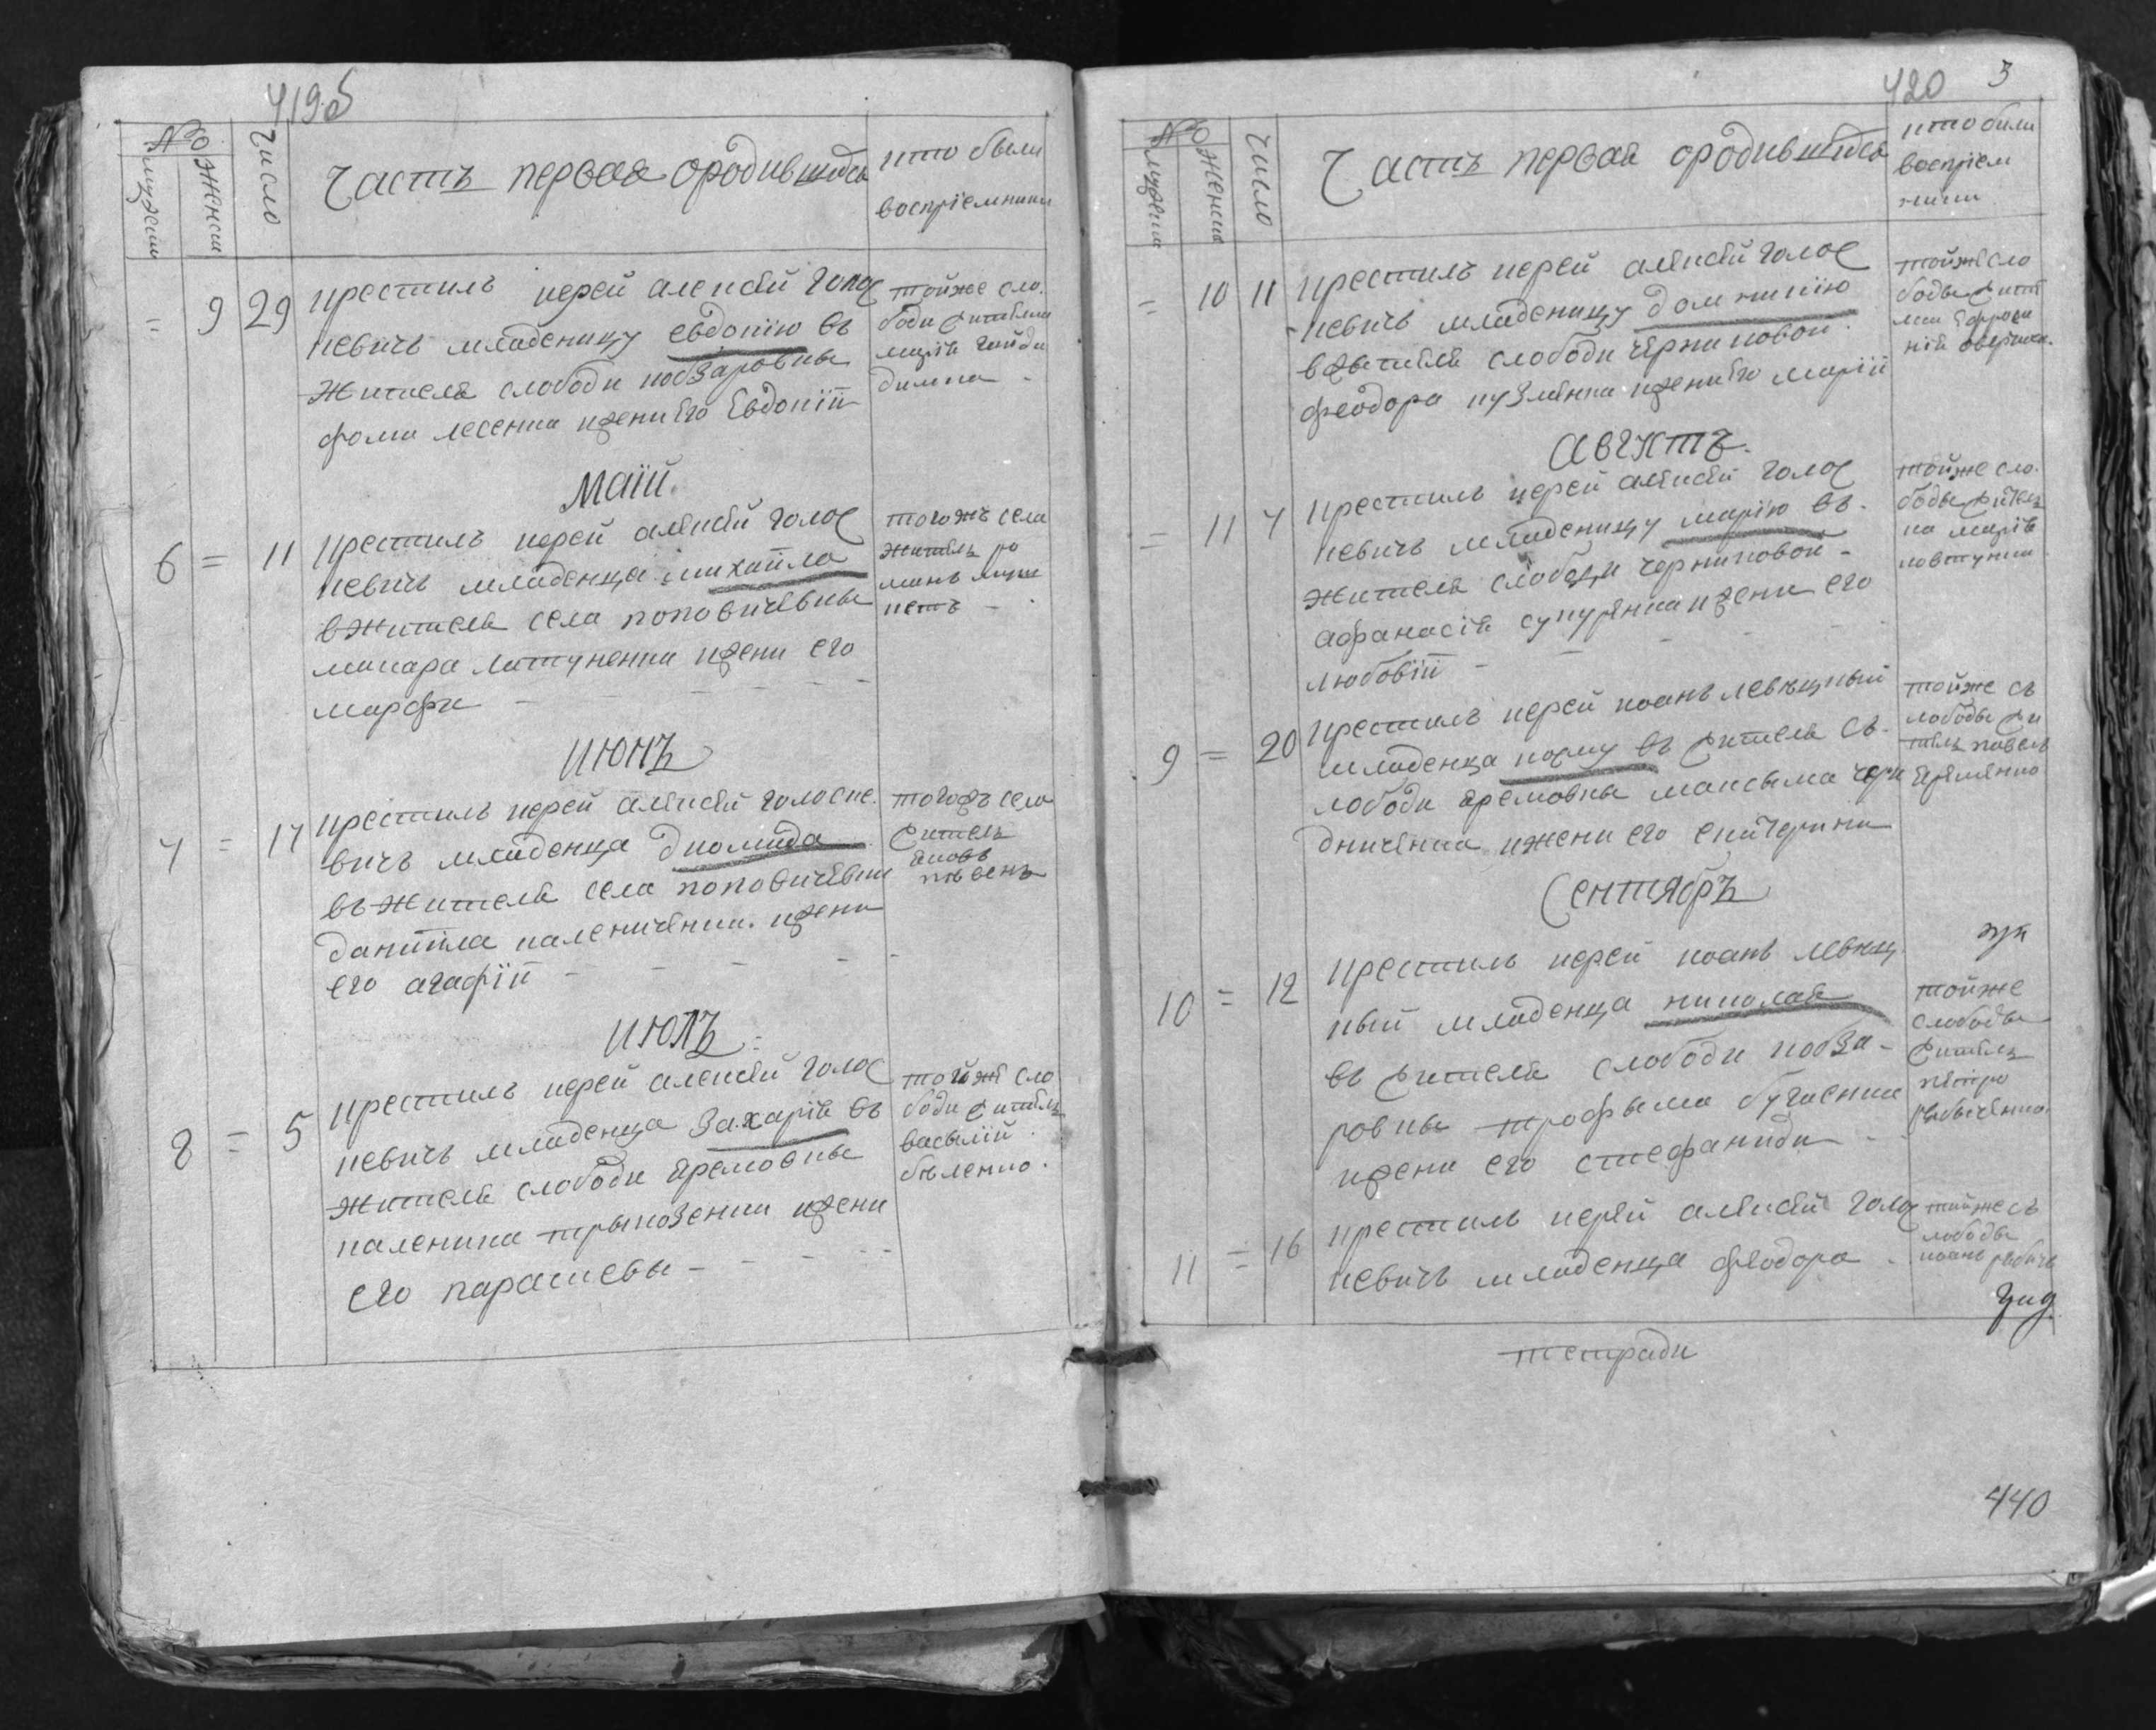 419об
№
мужеск
женск
число
Часть первая ородившихся
кто были
восприемники
=
9
29
крестилъ иерей алексѣй голос
кевичъ младеницу евдокию въ
жителя слободи кобзаровки
фоми лесенка ижени его Евдокіи
тойже сло
боди жителки
марія гайди
димка
Маій
6
=
11
крестилъ иерей алексѣй голос
кевичъ младенца михаила
вжителя села поповичевки
макара литуненки ижени его
марфи
тогожъ села
житель ро
манъ
июнь
7
=
17
крестилъ иерей алексѣй голоске
вичъ младенца диомида
въ жителя села поповичевки
даниила паленичѣнки ижени
его агафіи
тогожъ села
житель
яковъ
пивень
июль
8
=
5
крестилъ иерей алексѣй голос
кевичъ младенца захарія въ
жителя слободи яремовки
каленика трыкозенки ижени
его параскевы
тойже сло
боди житель
васылій
бѣленко
420
3
№
мужеск
женск
число
Часть первая ородившихся
кто били
восприем
ники
=
10
11
крестилъ иерей алексѣй голос
кевичъ младеницу домникію
вжителя слободи чернчковой
феодора кузменка ижени его маріи
тойже сло
боды жит
лки Ефроси
нія
Августъ
=
11
7
крестилъ иерей алексѣй голос
кевичъ младеницу марію въ
жителя слободи чернчковой
афанасія супруненка ижени его
любовіи
тойже сло
боды
ка марія
ковтунки
9
=
20
крестилъ иерей иоанъ левицкый
младенца козму въ жителя с
лободи яремовки максыма чере
дничѣнка ижени его екатерини
тойже с
лободы жи
тель павелъ
Ярѣменко
Сентябрь
10
=
12
крестилъ иерей иоанъ левиц
кый младенца николая
въ жителя слободи кобза
ровки трофыма бугаенки
ижени его стефаниди
тойже
слободы
житель
петро
рябичѣнко
11
=
16
крестилъ иерей алексѣй голос
кевичъ младенца феодора
тойже с
лободы
иоанъ рябичѣ
тетради
440